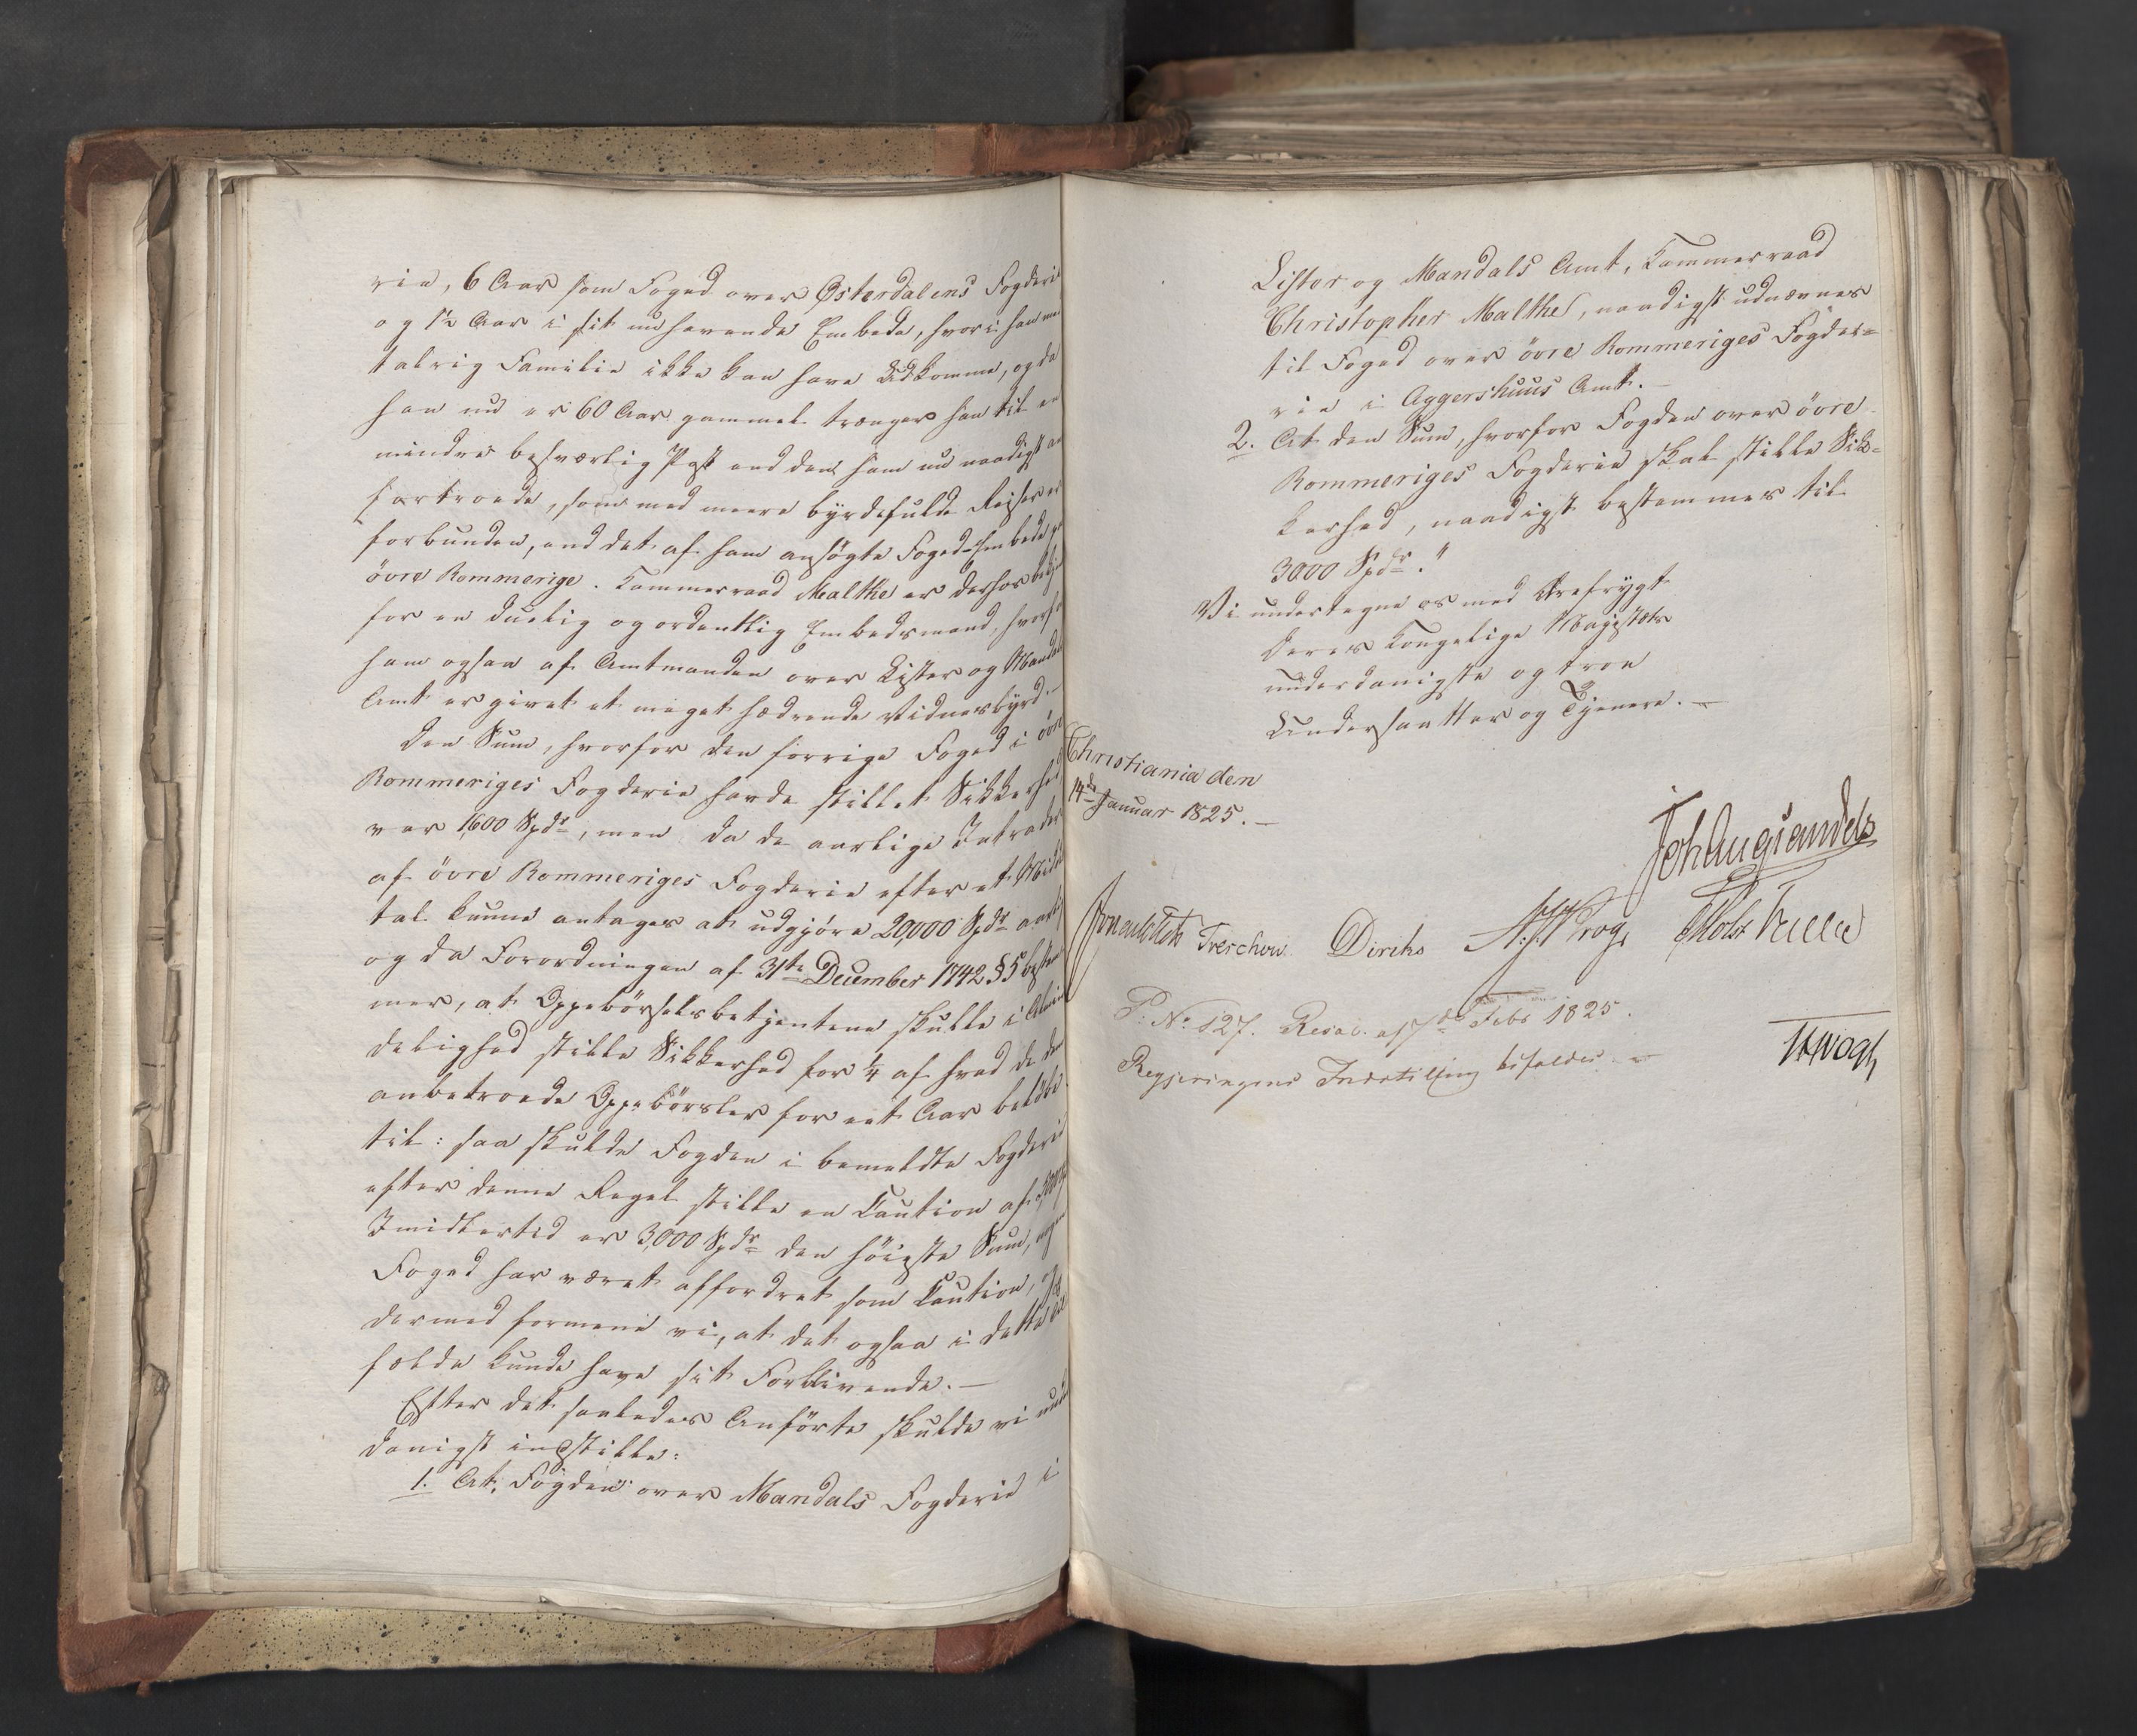 rie, 6 Aar som Foged over Østerdalens Fogderie
og 1½ Aar i sit nuhavende Embede, hvori han med
talrig Familie ikke kan have Udkomme, og da
han nu er 60 Aar gammel trænger han til en
mindre besværlig Post end den ham nu naadigst an
fortroede, som med meere byrdefulde Reiser er
forbunden, end det af ham ansøgte Foged-Embede på
övre Rommerige. Kammerraad Malthe er derhos bekjendt
for en duelig og ordentlig Embedsmand, hvorfor
ham ogsaa af Amtmanden over Lister og Mandals
Amt er givet et meget hædrende Vidnesbyrd.—
Den Sum, hvorfor den forrige Foged i övre
Rommeriges Fogderie havde stillet Sikkerhed
var 1,600 Spdr, men da de aarlige Intrader
af övre Rommeriges Fogderie efter et Middel
tal kunne antages at udgjøre 20,000 Spdr aarlig
og da Forordningen af 31te December 1742 § 5 bestem
mer, at Oppebörselsbetjentene skulle i Almin
delighed stille Sikkerhed for ¼ af hvad de dem
anbetroede Oppebörsler for eet Aar belöbe
til: saa skulde Fogden i bemeldte Fogderie
efter denne Regel stille en Caution af
Imidlertid er 3,000 Spdr den höieste Sum, nogen
Foged har været affordret som Caution, og
dermed formene vi, at det ogsaa i dette
fælde kunde have sit Forblivende.—
Efter det saaledes Anförte skulde vi under
danigst indstille:
1. At Fogden over Mandals Fogderie i
Lister og Mandals Amt, Kammerraad
Christopher Malthe, naadigst udnævnes
til Foged over övre Rommeriges Fogder=
rie i Aggershuus Amt.—
2. At den Sum, hvorfor Fogden over övre
Rommeriges Fogderie skal stille Sik=
kerhed, naadigst bestemmes til
3000 Spdr."
Vi undertegne os med Ærefrygt
Deres Kongelige Majestæts
underdanigste og troe
Undersaatter og Tjenere.—
Christiania den
14de Januar 1825.—
Joh Aug Sandels
Jonas Collett Treschow Diriks A. J. Krog P Motzfeldt Fasting
P: No 127. Resol. af 7de Febr 1825.
Regjeringens Indstilling bifaldes.
Vogt